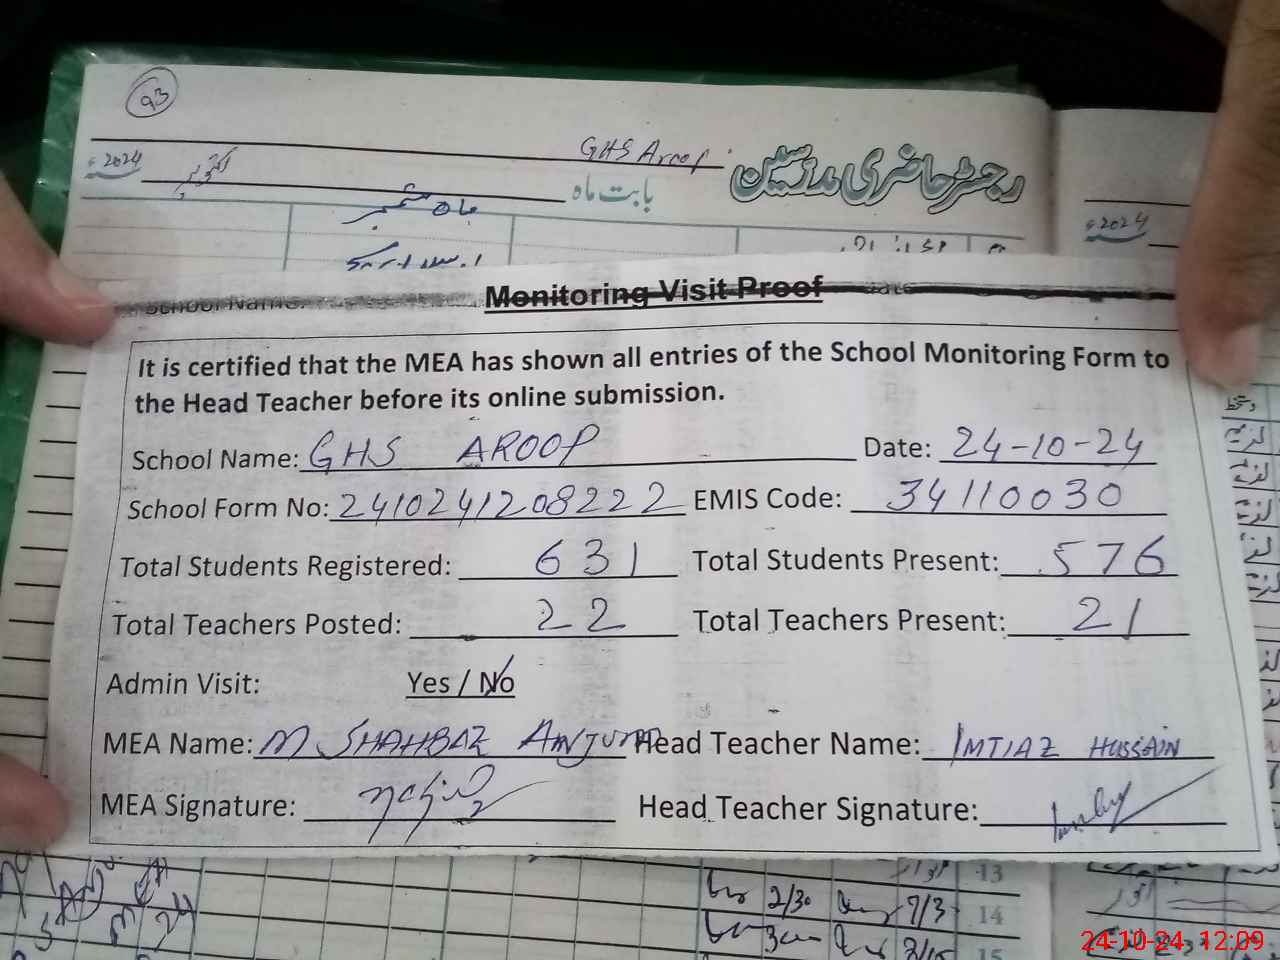 93
GHS Aroop
رجسٹر حاضری مدرسین
بابت ماہ
اکتوبر
2024ء
2024ء
Monitoring Visit Proof
School Name:
It is certified that the MEA has shown all entries of the School Monitoring Form to
the Head Teacher before its online submission.
School Name: GHS AROOP Date: 24-10-24
School Form No: 2410241208222 EMIS Code: 34110030
Total Students Registered: 631 Total Students Present: 576
Total Teachers Posted: 22 Total Teachers Present: 21
Admin Visit: Yes / No
MEA Name: M SHAHBAZ ANJUM Head Teacher Name: IMTIAZ HUSSAIN
MEA Signature: Head Teacher Signature:
13
2/30 7/3 14
15
24-10-24, 12:09